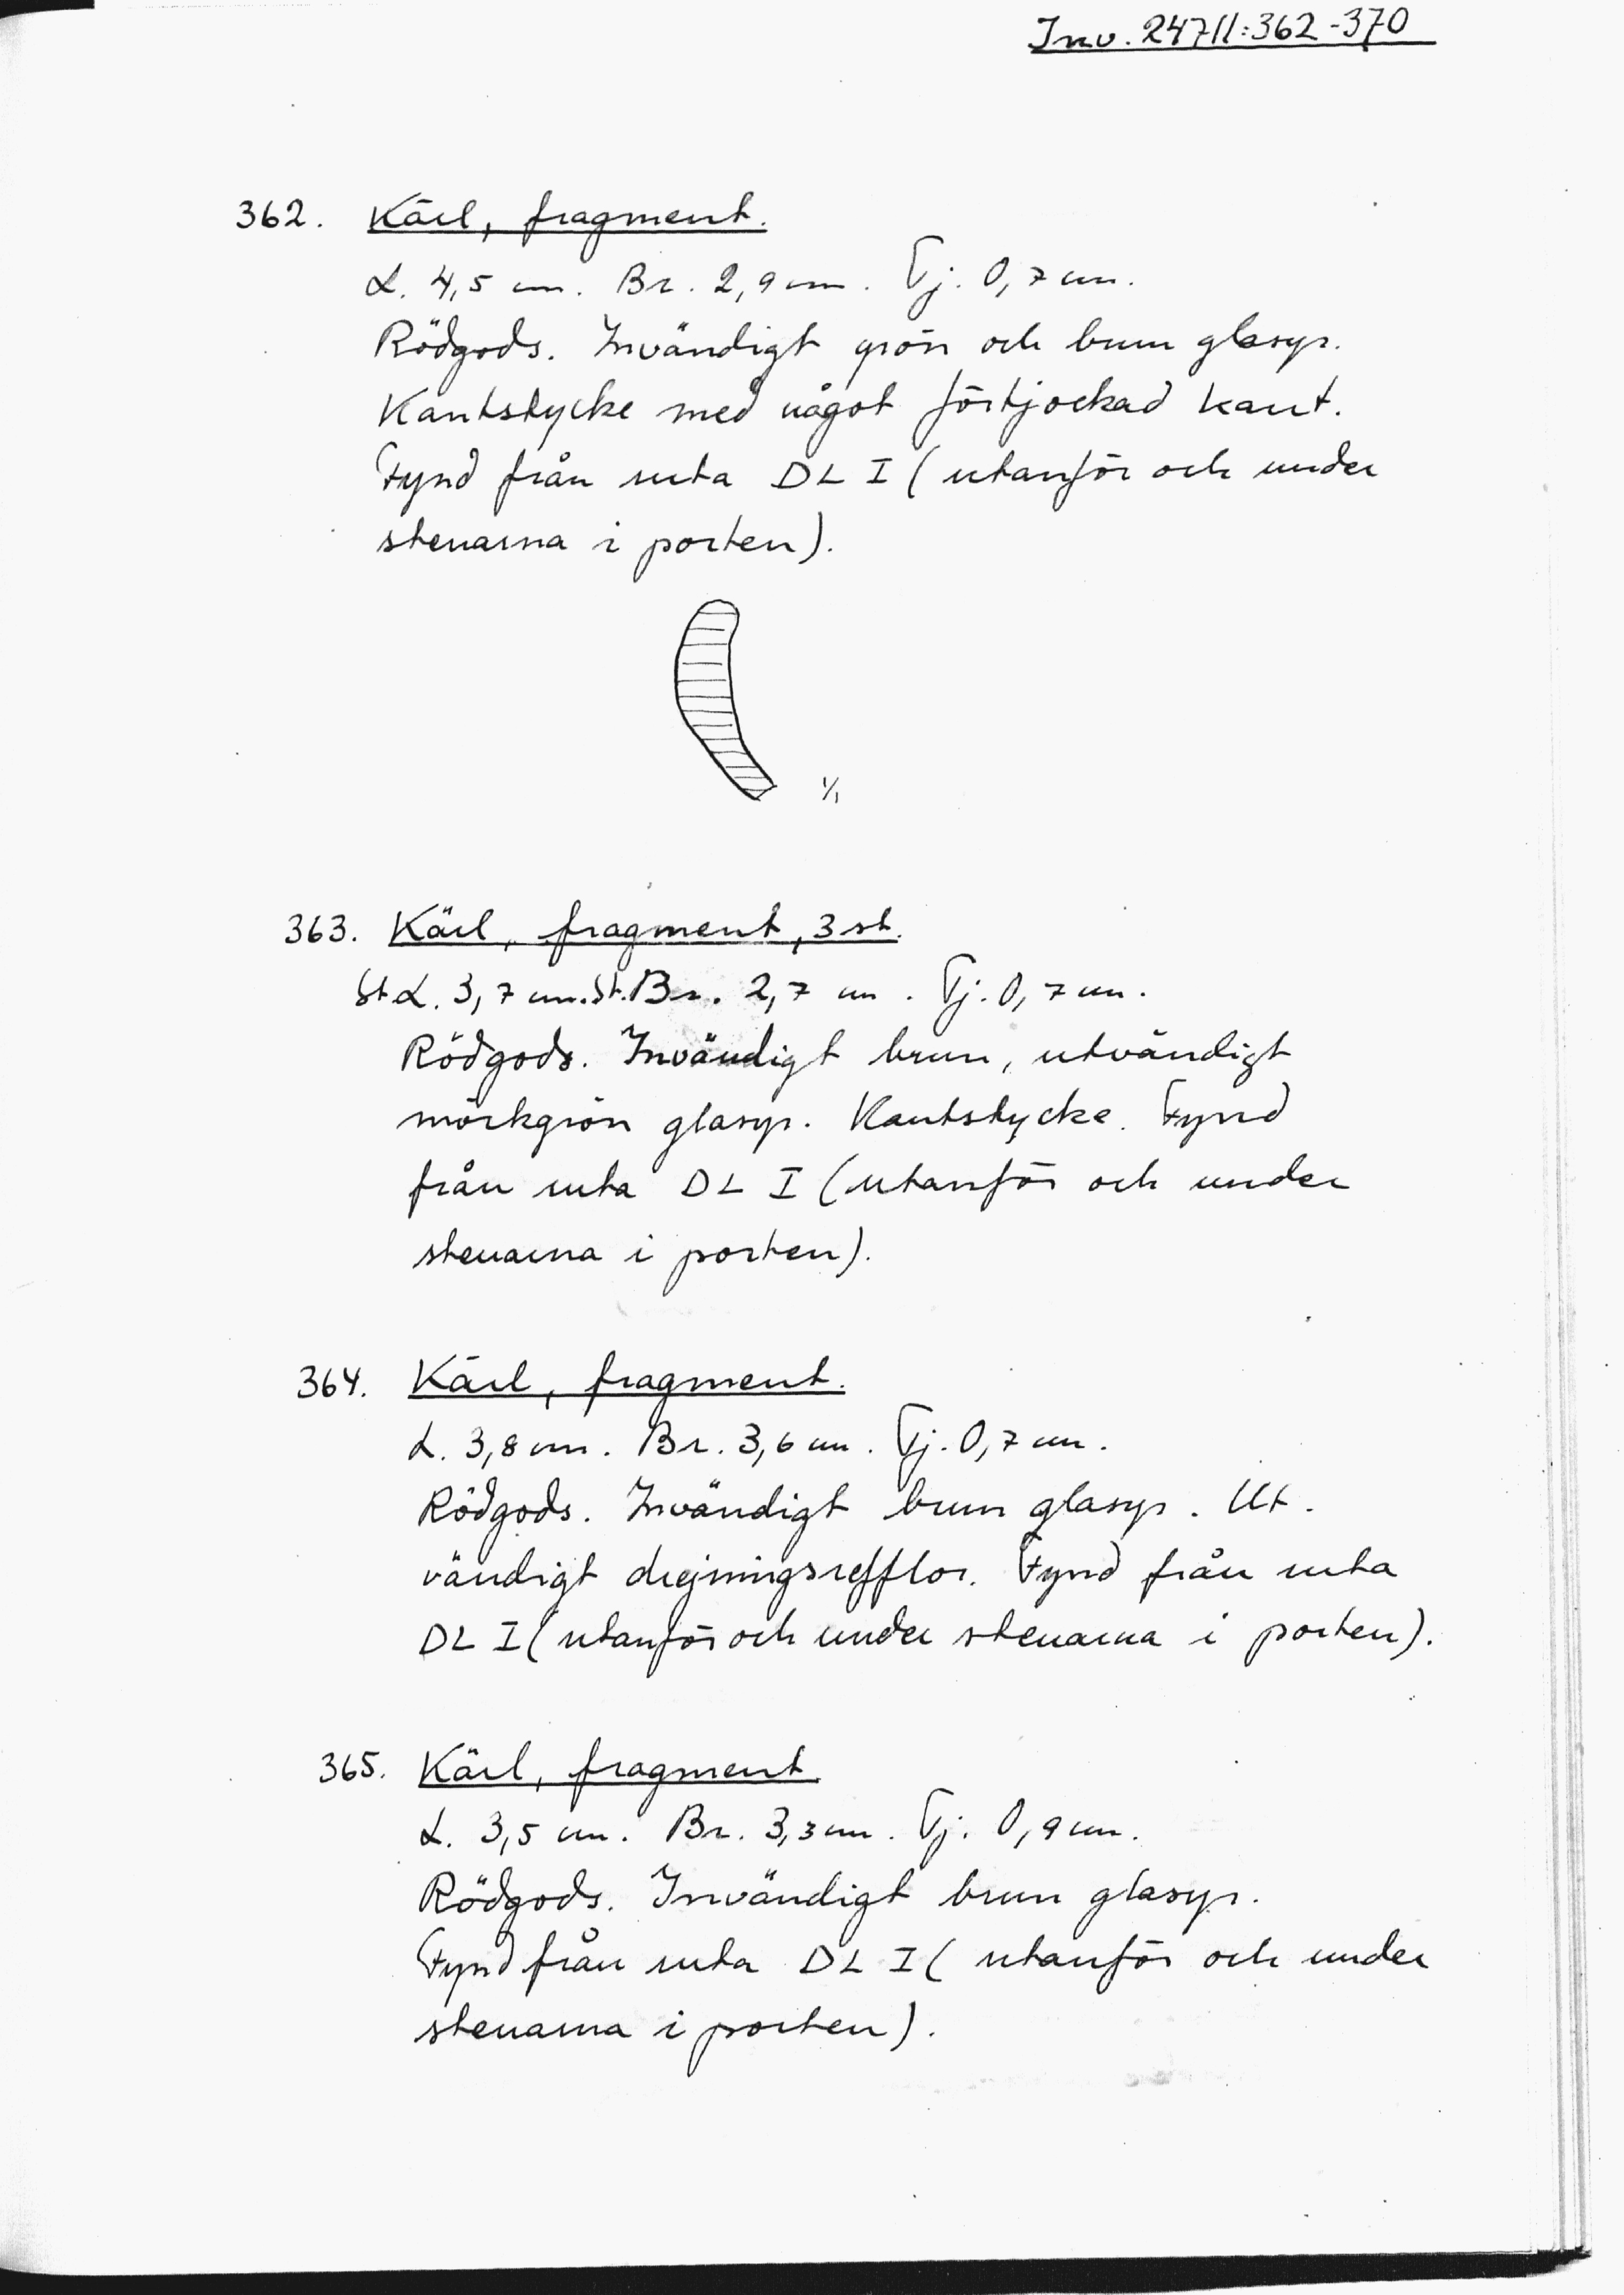 Inv. 24711:362-370
362. Kärl, fragment.
L. 4,5 cm. Br. 2,9 cm. Tj. 0,7 cm.
Rödgods. Invändigt grön och brun glasyr.
Kantstycke med något förtjockad kant.
Fynd från ruta DL I (utanför och under
stenarna i porten).
1/1
363. Kärl, fragment, 3 st.
St. L. 3,7 cm. St. Br. 2,7 cm. Tj. 0,7 cm.
Rödgods. Invändigt brun, utvändigt
mörkgrön glasyr. Kantstycke. Fynd
från ruta DL I (utanför och under
stenarna i porten).
364. Kärl, fragment.
L. 3,8 cm. Br. 3,6 cm. Tj. 0,7 cm.
Rödgods. Invändigt brun glasyr. Ut-
vändigt drejningsrefflor. Fynd från ruta
DL I (utanför och under stenarna i porten).
365. Kärl, fragment.
L. 3,5 cm. Br. 3,3 cm. Tj. 0,9 cm.
Rödgods. Invändigt brun glasyr.
Fynd från ruta DL I (utanför och under
stenarna i porten).